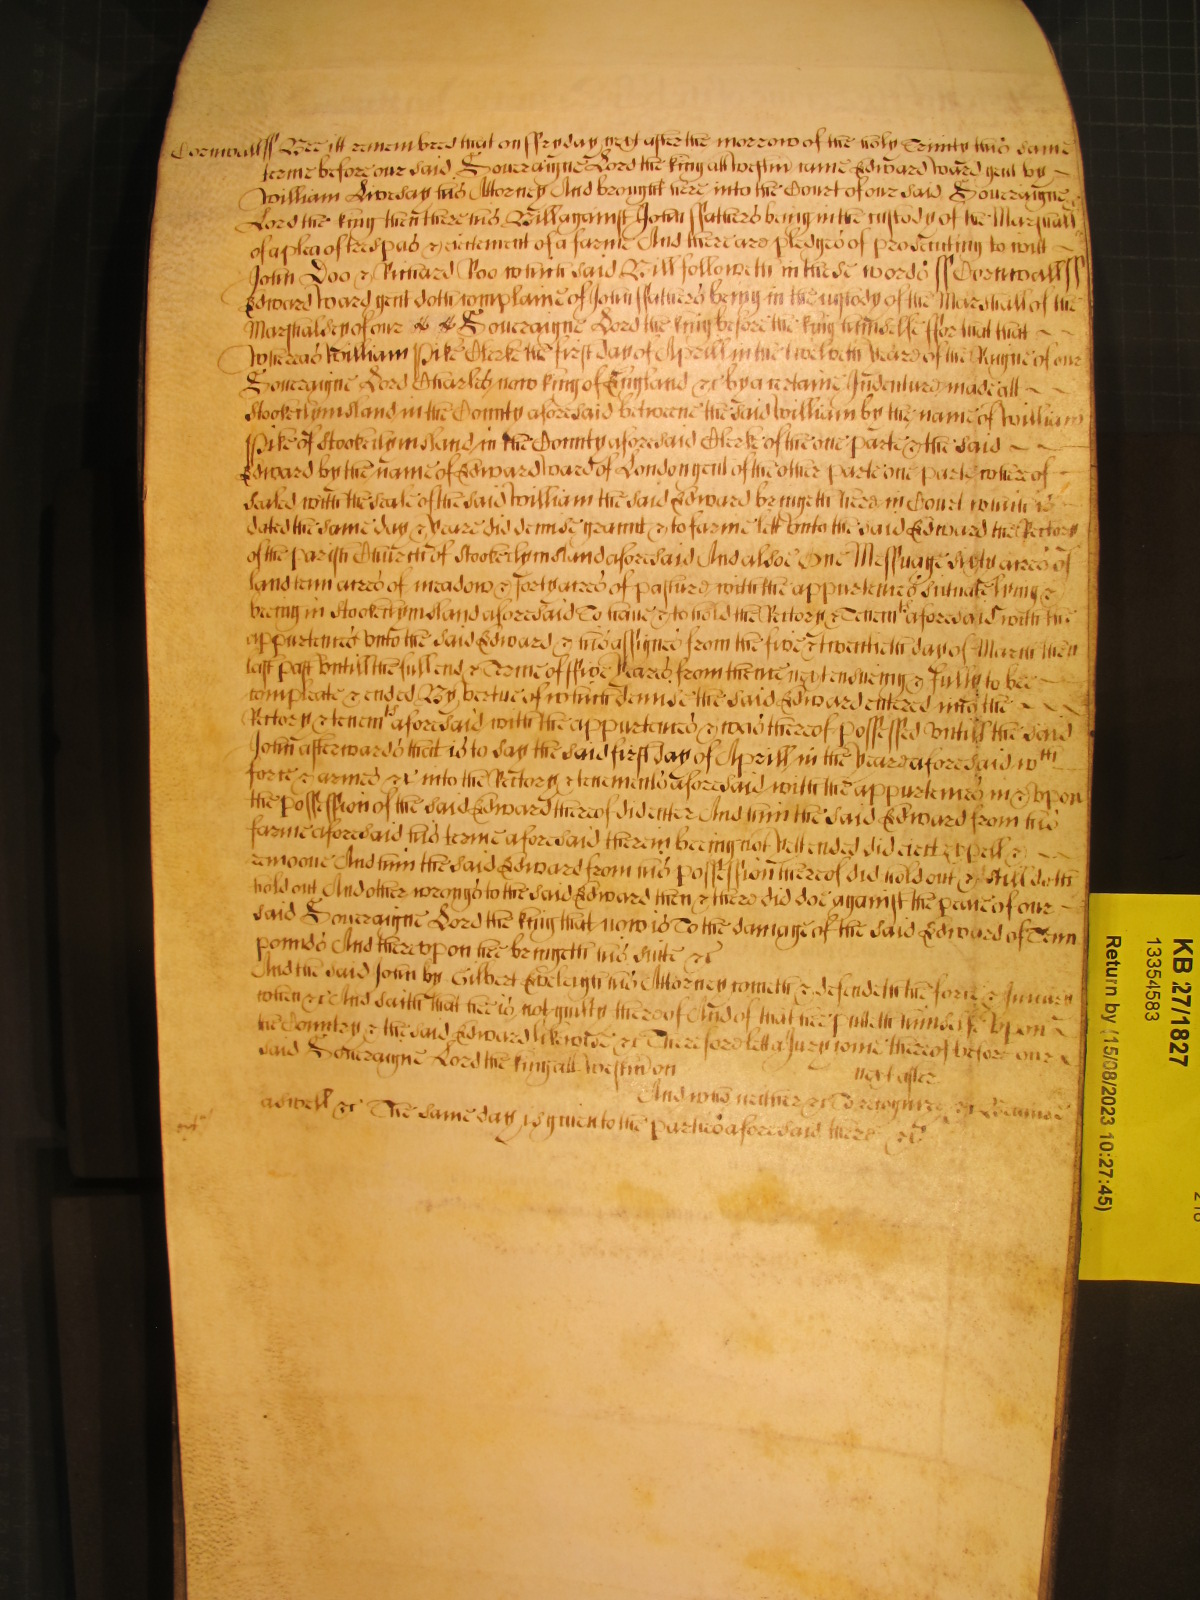 Cornwall ss Bee itt remembred that on ffryday next after the morrow of the holy Trinity this same
terme before our said Soveraigne Lord the king att Westm came Edward Ward gent by
William Livesay his Attorney And brought here into the Court of our said Soveraigne
Lord the king then there his Bill against John ffathers being in the custody of the Marshall
of a plea of trespas & eiectement of a farme And there are pledges of prosecuting to witt
John Doo & Richard Roo which said Bill followeth in these words ss Cornwall ss
Edward Ward gent doth complaine of John ffathers being in the custody of the Marshall of the
Marshalsey of our Soveraigne Lord the king before the king himselfe ffor that that
Whereas William Pike Clerke the first day of Aprill in the twelveth yeare of the Raigne of our
Soveraigne Lord Charles now king of England &c by a certaine Indenture made att
Stoakeclymsland in the County aforesaid betweene the said William by the name of William
Pike of Stoakeclymsland in the County aforesaid Clerke of the one parte & the said
Edward by the name of Edward Ward of London gent of the other parte one parte whereof
sealed with the seale of the said William the said Edward bringeth here in Court which is
dated the same day & yeare did demise graunt & to farme lett unto the said Edward the Rectory
of the Parish Church of Stoakeclymsland aforesaid And alsoe One Messuage sixty acres of
land tenn acres of meadow & forty acres of pasture with the appurtences situate lying &
beeing in Stoakeclymsland aforesaid To have & to hold the Rectory & Tenemts aforesaid with the
appurtences unto the said Edward & his assignes from the five & twentieth day of March then
last past untill the full end & Terme of ffive yeares from thence next ensueing & fully to bee
compleate & ended By vertue of which demise the said Edward entered into the
Rectory & tenemts aforesaid with the appurtences & was thereof possessed untill the said
John afterwards that is to say the said first day of Aprill in the yeare aforesaid wth
force & armes &c into the Rectory & tenements aforesaid with the appurtences in & upon
the possession of the said Edward thereof did enter And him the said Edward from his
farme aforesaid his terme aforesaid therein beeing not yett ended did eiect expell &
remoove And him the said Edward from his possession thereof did hold out & still doth
hold out And other wrongs to the said Edward then & there did doe against the peace of our
said Soveraigne Lord the king that now is To the damage of the said Edward of Tenn
pounds And thereupon hee bringeth his suite &c
And the said John by Gilbert Eveleigh his Attorney cometh & defendeth the force & Iniury
when &c And saith that hee is not guilty thereof And of that hee putteth himselfe upon
the Country & the said Edward likewise &c Therefore lett a Jury come thereof before our
said Soveraigne Lord the king att Westm on next after
And who neither &c To recognize &c Because
aswell &c The same day is given to the parties aforesaid there &c
KB 27/1827
13354583
Return by (15/08/2023 10:27:45)